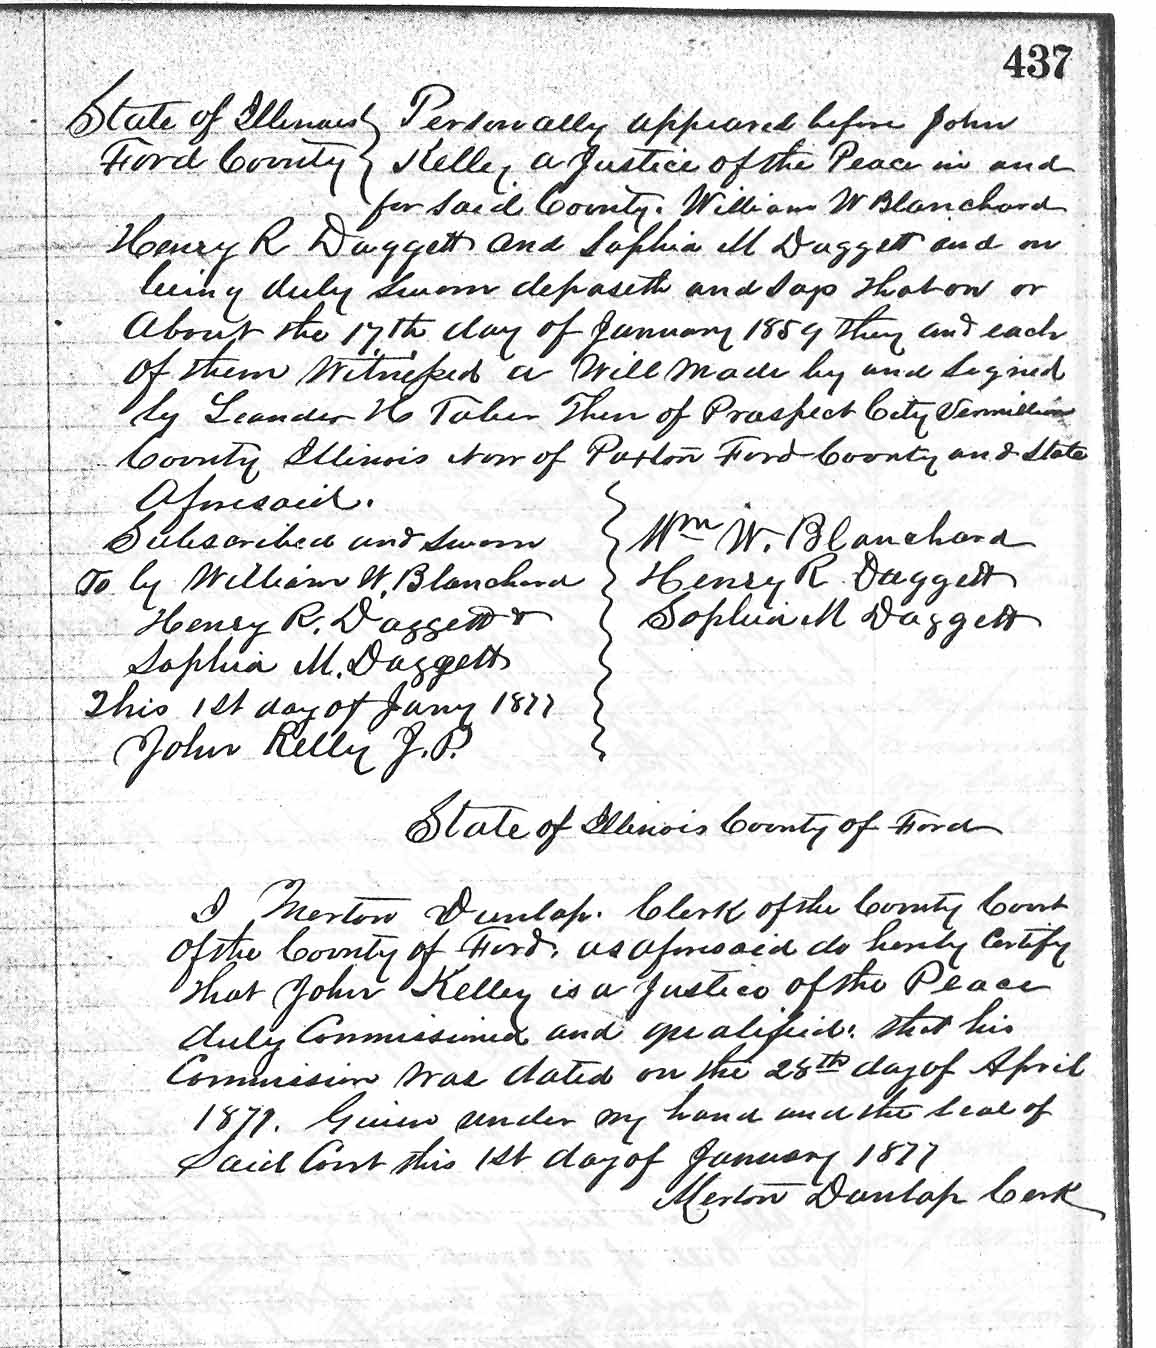 437
State of Illinois } Personally appeared before John
Ford County } Kelley a Justice of the Peace in and
for said County. William W Blanchard
Henry R Daggett and Sophia M Daggett and on
being duly sworn deposeth and say that on or
About the 17th day of January 1859 they and each
of them Witnessed a Will Made by and signed
by Leander H Taber Then of Prospect City Vermillion
County Illinois Now of Paxton Ford County and State
Aforesaid.
Subscribed and sworn
To by William W. Blanchard
Henry R. Daggett &
Sophia M. Daggett
This 1st day of Jany 1877
John Kelly J.P.
Wm W. Blanchard
Henry R Daggett
Sophia M Daggett
State of Illinois County of Ford
I Merton Dunlap. Clerk of the County Court
of the County of Ford. as aforesaid do hereby certify
that John Kelley is a Justice of the Peace
duly Commissioned and qualified. that his
Commission was dated on the 28th day of April
Given under my hand and the seal of
said Court this 1st day of January 1877
Merton Dunlap Clerk